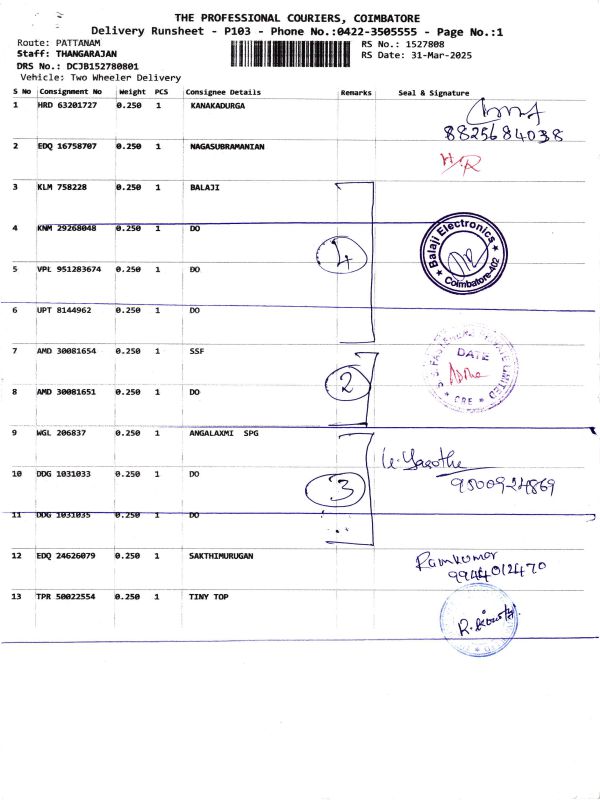 THE PROFESSIONAL COURIERS, COIMBATORE
Delivery Runsheet - P103 - Phone No.:0422-3505555 - Page No.:1
Route: PATTANAM RS No.: 1527808
Staff: THANGARAJAN RS Date: 31-Mar-2025
DRS No.: DCJB152780801
Vehicle: Two Wheeler Delivery
S No Consignment No Weight PCS Consignee Details Remarks Seal & Signature
1 HRD 63201727 0.250 1 KANAKADURGA
8825684038
2 EDQ 16758707 0.250 1 NAGASUBRAMANIAN
3 KLM 758228 0.250 1 BALAJI
4 KNM 29268048 0.250 1 DO
4
Balaji Electronics
Coimbatore-402
5 VPL 951283674 0.250 1 DO
6 UPT 8144962 0.250 1 DO
7 AMD 30081654 0.250 1 SSF
DATE
CBE
8 AMD 30081651 0.250 1 DO
2
9 WGL 206837 0.250 1 ANGALAXMI SPG
10 DDG 1031033 0.250 1 DO
3
9500924869
11 DDG 1031035 0.250 1 DO
12 EDQ 24626079 0.250 1 SAKTHIMURUGAN
Ramkumar
9944012470
13 TPR 50022554 0.250 1 TINY TOP